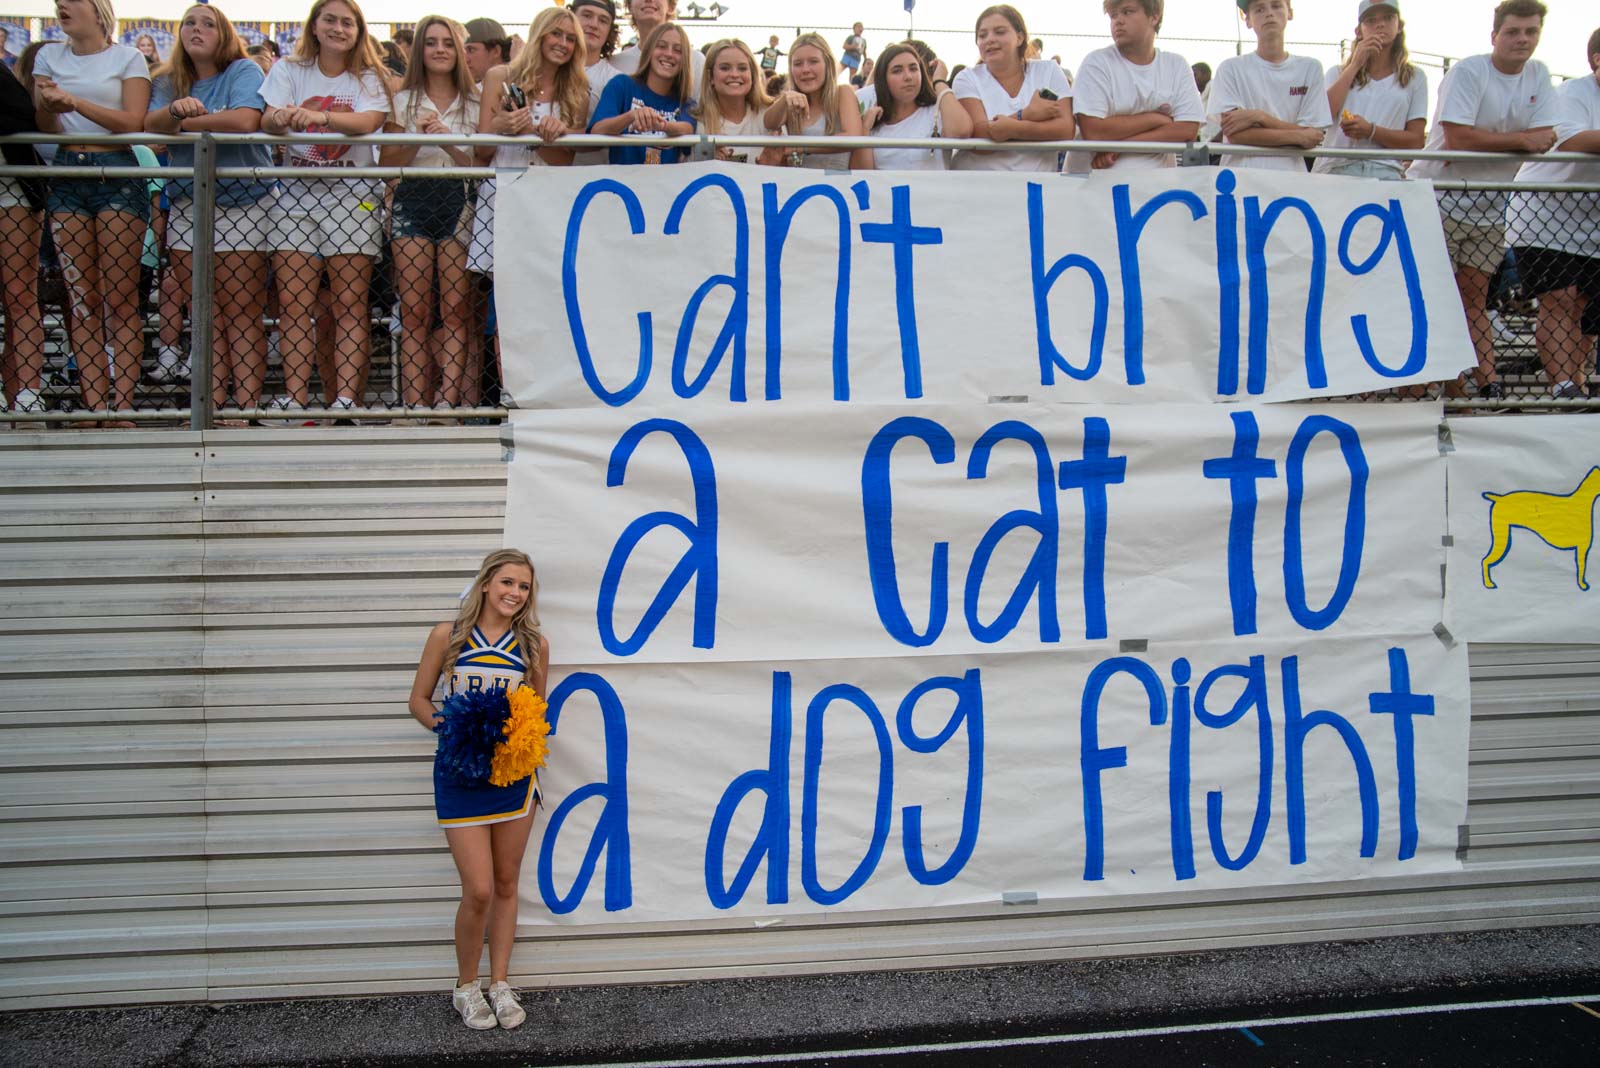 can't bring
a cat to
a dog fight